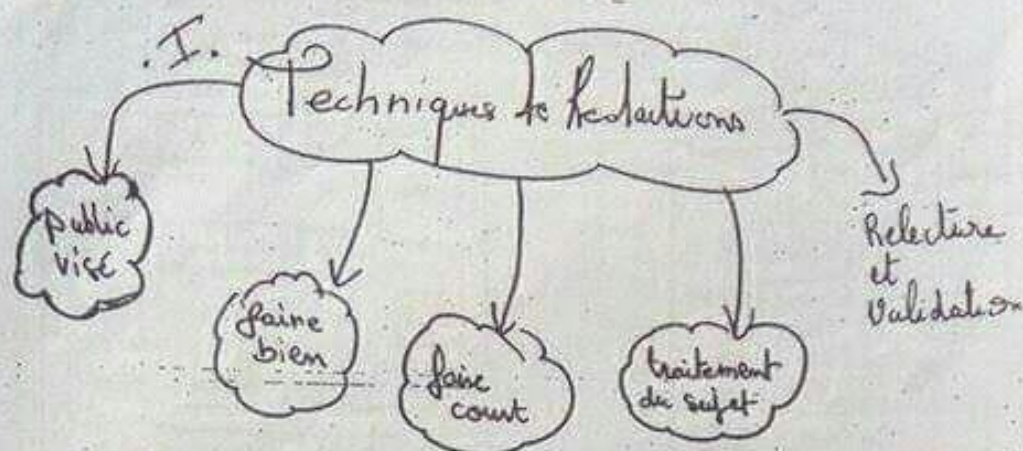 .I.
Techniques de Redactions
public
visé
faire
bien
faire
court
traitement
du sujet
Relecture
et
Validation